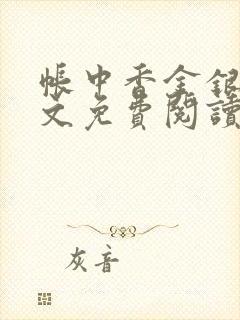 帳中香金銀
文免費閱讀
灰音